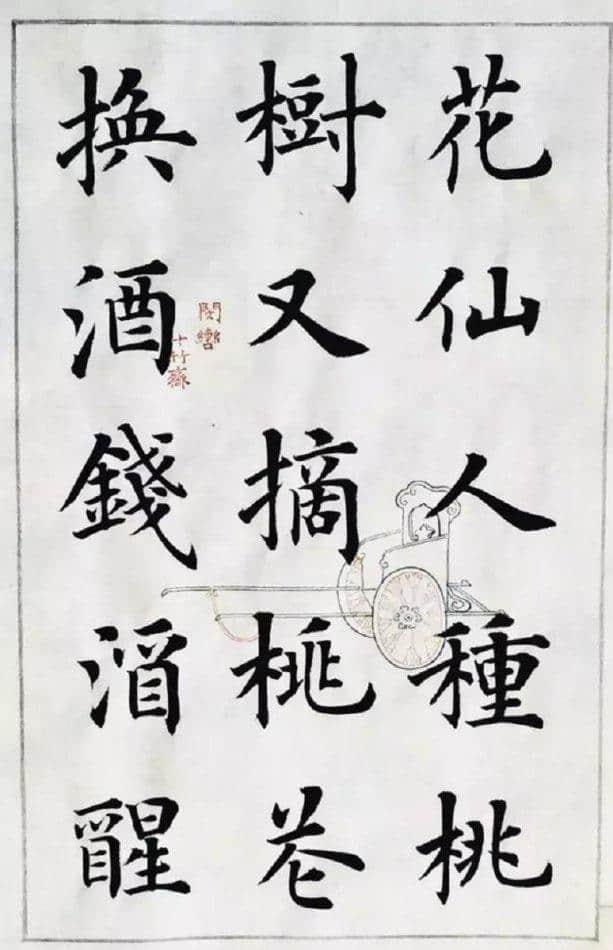 花仙人種桃
樹又摘桃花
換酒錢酒醒
十竹齋